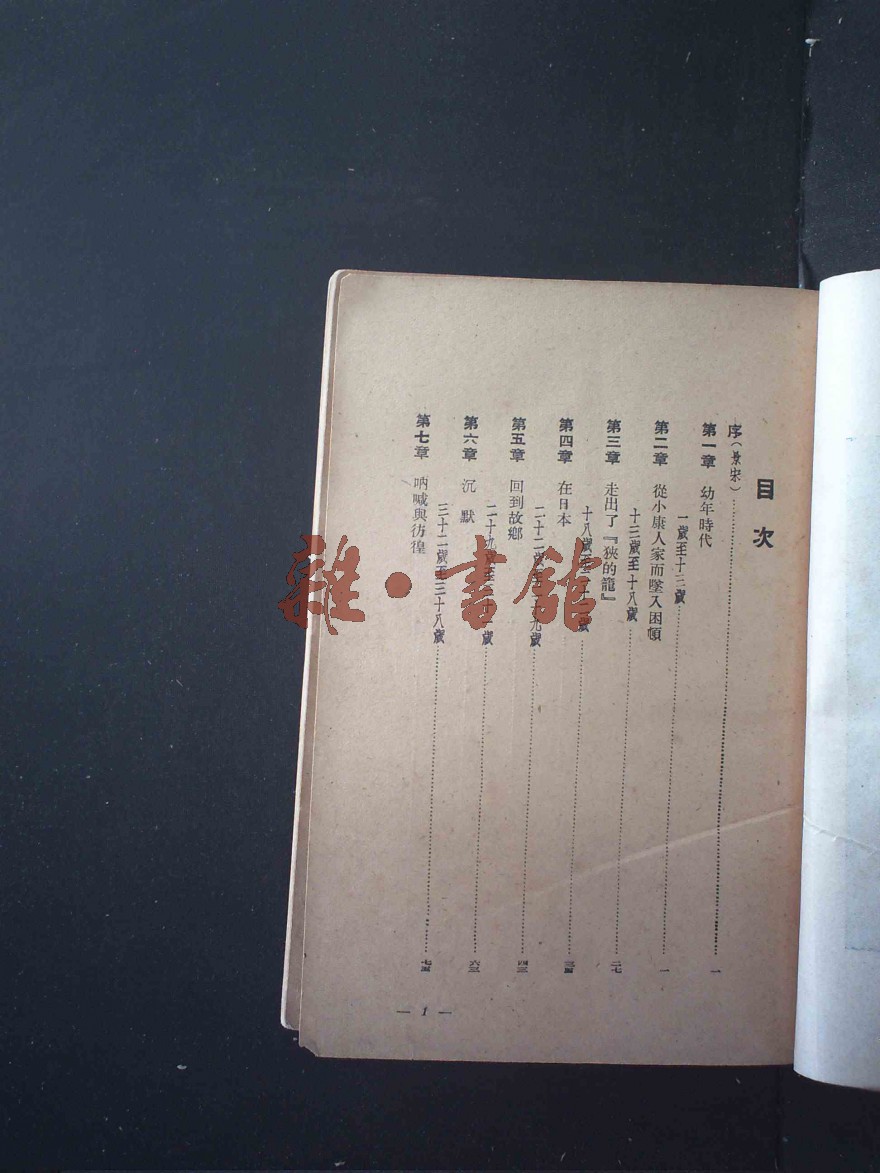 目次
序(景宋)……一
第一章 幼年時代
一歲至十三歲……一
第二章 從小康人家而墜入困頓
十三歲至十八歲……二七
第三章 走出了『狹的籠』
十八歲至二十二歲……三四
第四章 在日本
二十二歲至二十九歲……四三
第五章 回到故鄉
二十九歲至三十二歲……六三
第六章 沉默
三十二歲至三十八歲……七五
第七章 吶喊與彷徨
— 1 —
雜·書館